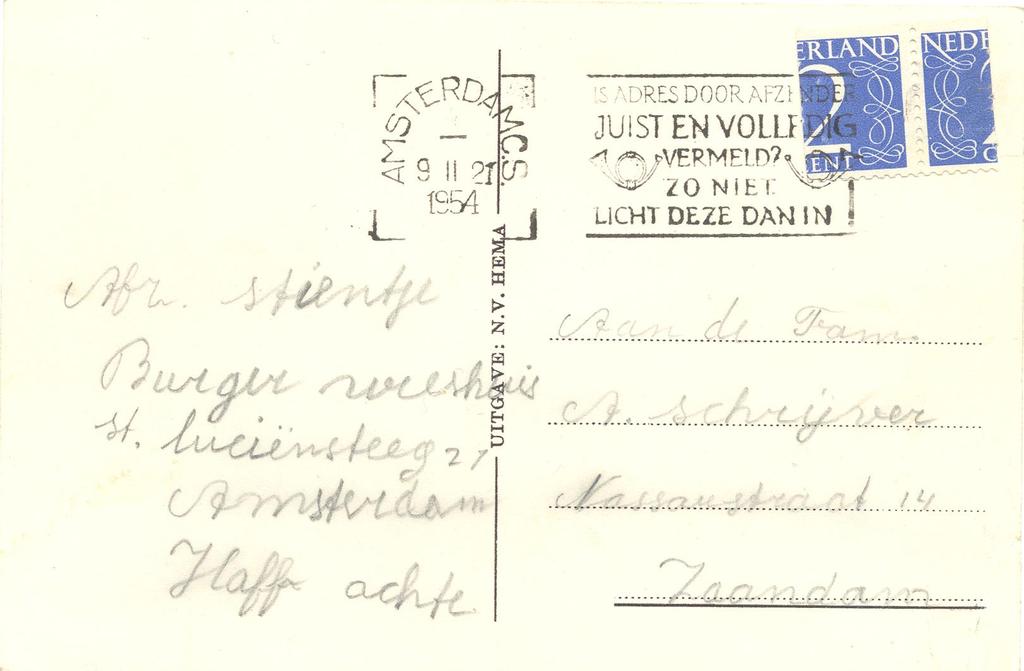 ERLAND NEDE
2 2
ENT C
AMSTERDAM C.S.
9 II 21
1954
IS ADRES DOOR AFZENDER
JUIST EN VOLLEDIG
VERMELD?
ZO NIET
LICHT DEZE DAN IN
UITGAVE: N.V. HEMA
Afz. Stientje
Burger weeshuis
St. luciënsteeg 27
Amsterdam
achte
Aan de Fam.
A. Schrijver
Nassaustraat 14
Zaandam